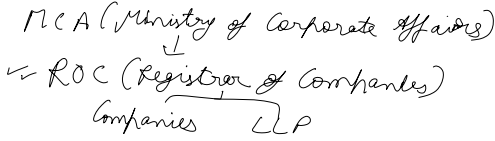 MCA (Ministry of Corporate Affairs)
ROC (Registrar of Companies)
Companies LLP